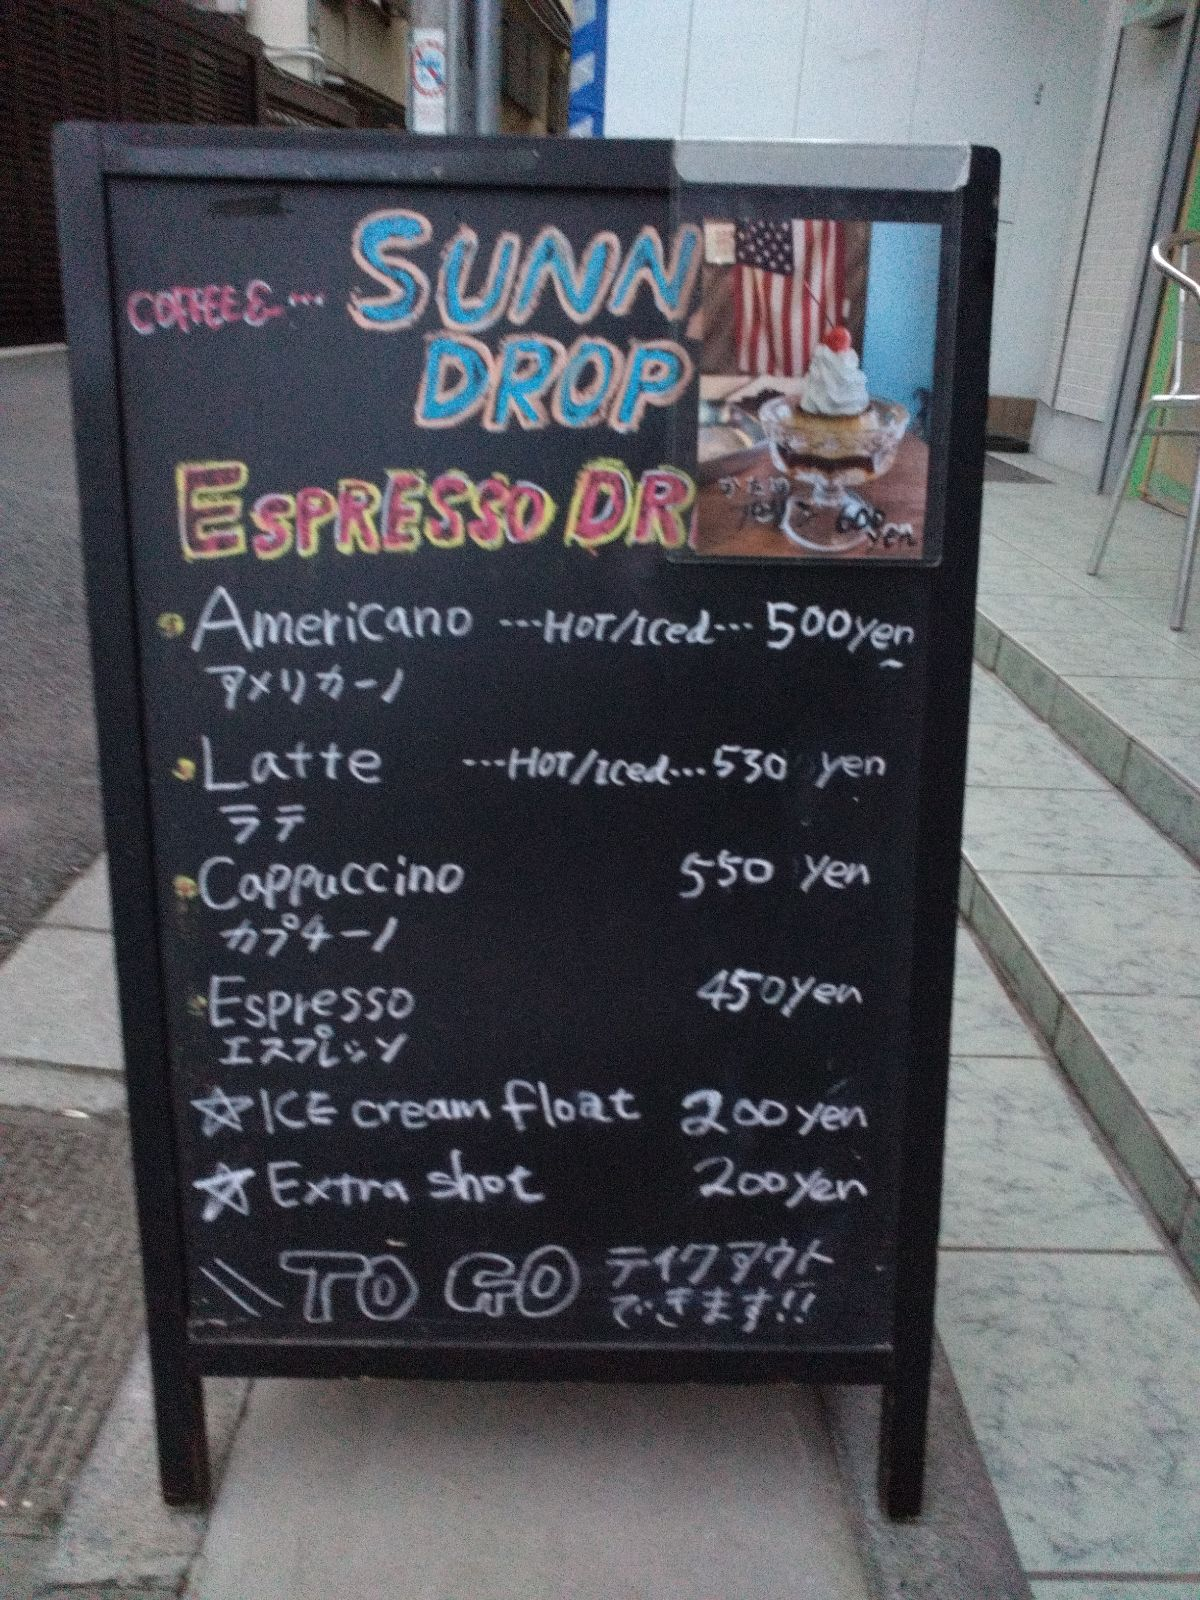 COFFEE & ... SUNN
DROP
ESPRESSO DR
かための
プリン 600
yen
Americano ---HOT/ICed--- 500yen
アメリカーノ
Latte ---HOT/ICed--- 530 yen
ラテ
Cappuccino 550 yen
カプチーノ
Espresso 450yen
エスプレッソ
☆ ICE cream float 200yen
☆ Extra shot 200yen
\\ TO GO テイクアウト
できます!!